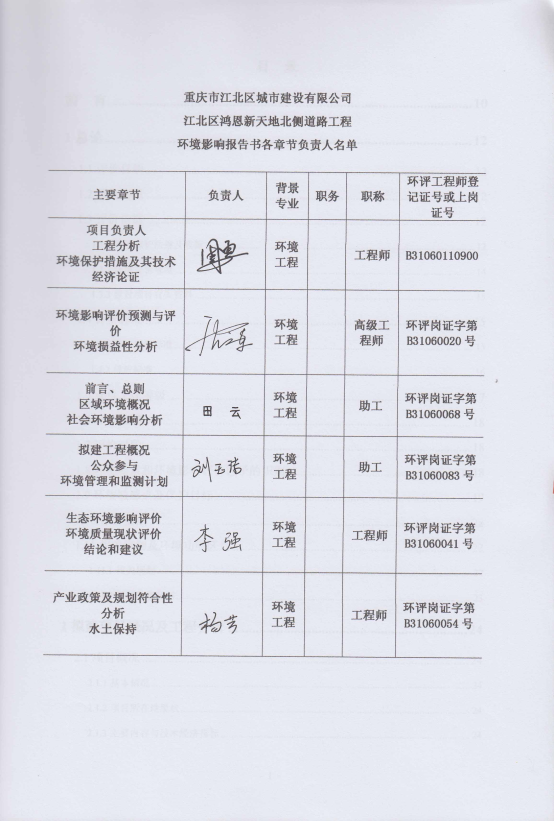 重庆市江北区城市建设有限公司
江北区鸿恩新天地北侧道路工程
环境影响报告书各章节负责人名单
主要章节 负责人 背景专业 职务 职称 环评工程师登记证号或上岗证号
项目负责人
工程分析
环境保护措施及其技术
经济论证
环境
工程
工程师
B31060110900
环境影响评价预测与评
价
环境损益性分析
环境
工程
高级工
程师
环评岗证字第
B31060020 号
前言、总则
区域环境概况
社会环境影响分析
田 云
环境
工程
助工
环评岗证字第
B31060068 号
拟建工程概况
公众参与
环境管理和监测计划
刘玉洁
环境
工程
助工
环评岗证字第
B31060083 号
生态环境影响评价
环境质量现状评价
结论和建议
李强
环境
工程
工程师
环评岗证字第
B31060041 号
产业政策及规划符合性
分析
水土保持
杨芳
环境
工程
工程师
环评岗证字第
B31060054 号